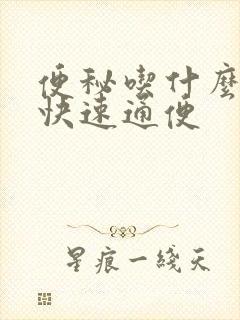 便秘喫什麼
快速通便
星痕一綫天